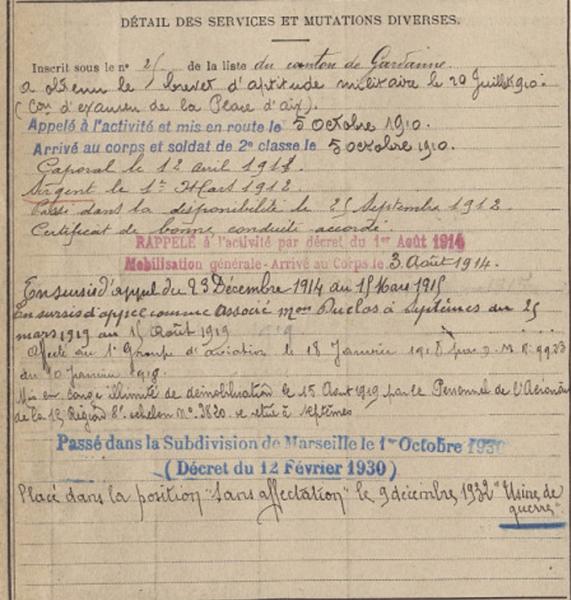 DÉTAIL DES SERVICES ET MUTATIONS DIVERSES.
Inscrit sous le n° 25 de la liste du canton de Gardanne.
a obtenu le brevet d'aptitude militaire le 20 Juillet 1910.
(Con d'examen de la Place d'aix).
Appelé à l'activité et mis en route le 5 octobre 1910.
Arrivé au corps et soldat de 2e classe le 5 octobre 1910.
Caporal le 12 avril 1911.
Sergent le 1er Mars 1912.
Passé dans la disponibilité le 25 Septembre 1912.
Certificat de bonne conduite accordé.
RAPPELÉ à l'activité par décret du 1er Août 1914
Mobilisation générale - Arrivé au Corps le 3 Août 1914.
En sursis d'appel du 23 Décembre 1914 au 15 Mars 1915
En sursis d'appel comme associé mon Duclos à Septèmes du 25
mars 1919 au 15 Août 1919
Affecté au 1er Groupe d'aviation le 18 Janvier 1918
du 10 Janvier 1918.
Mis en congé illimité de démobilisation le 15 Aout 1919 par le Personnel de l'Aéronau
de la 15 Région 8e échelon N° 3820 se retire à Septèmes
Passé dans la Subdivision de Marseille le 1er Octobre 1930
(Décret du 12 Février 1930)
Placé dans la position "Sans affectation" le 9 décembre 1932 "Usine de
guerre"